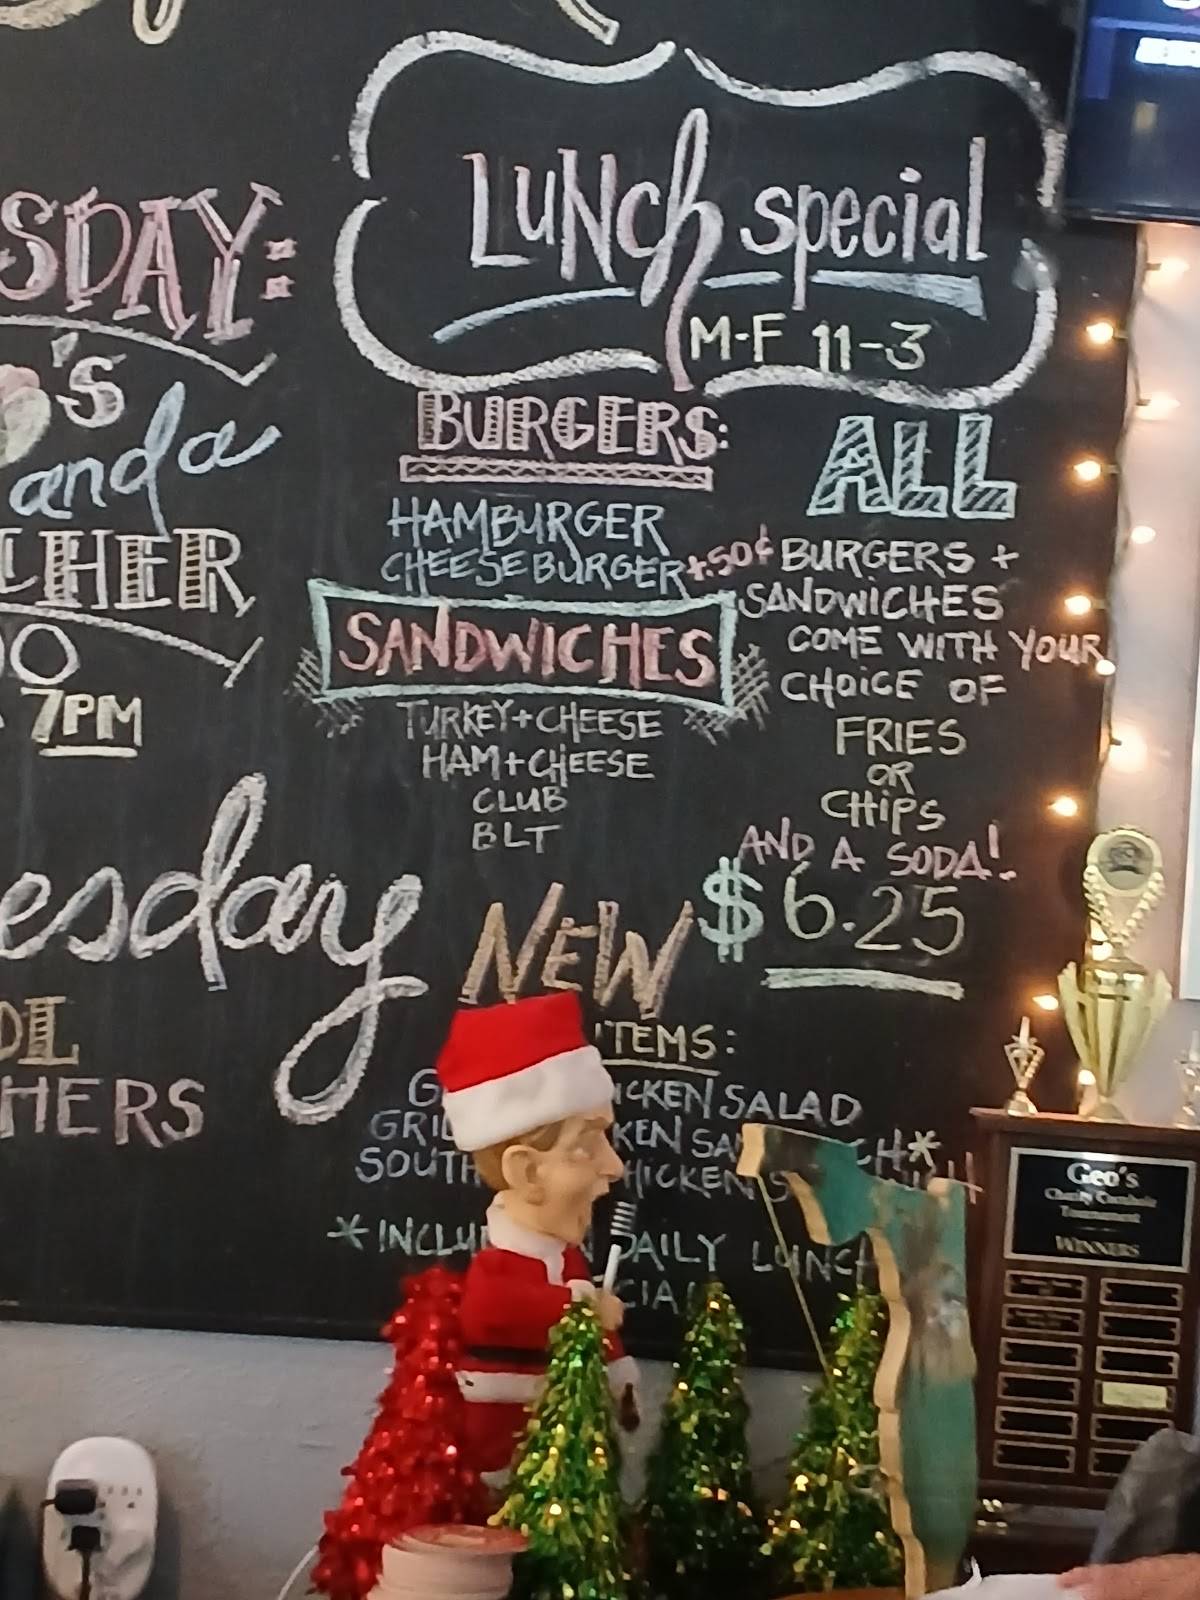 SDAY:
'S
and a
LHER
7PM
esday
HERS
LUNCH special
M-F 11-3
BURGERS:
HAMBURGER
CHEESEBURGER +.50¢
SANDWICHES
TURKEY+CHEESE
HAM+CHEESE
CLUB
BLT
ALL
BURGERS +
SANDWICHES
COME WITH YOUR
CHOICE OF
FRIES
OR
CHIPS
AND A SODA!
$6.25
NEW
ITEMS:
ICKEN SALAD
GRIL KEN SA CH*
SOUTH HICKEN S
*INCLU N DAILY LUNCH
CIAL
Geo's
Charity Cornhole
Tournament
WINNERS